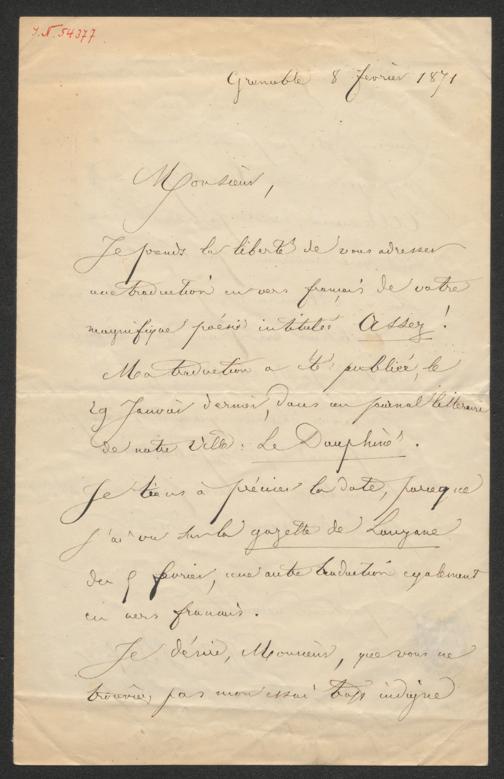 J.N. 54377
Grenoble 8 février 1871
Monsieur,
Je prends la liberté de vous adresser
une traduction en vers français de votre
magnifique poésie intitulée Assez !
Ma traduction a été publiée, le
29 Janvier dernier, dans un journal littéraire
de notre ville : Le Dauphiné.
Je tiens à préciser la date, parceque
j'ai vu sur la gazette de Lauzane
du 5 février, une autre traduction egalement
en vers français.
Je désire, Monsieur, que vous ne
trouviez pas mon essai trop indigne